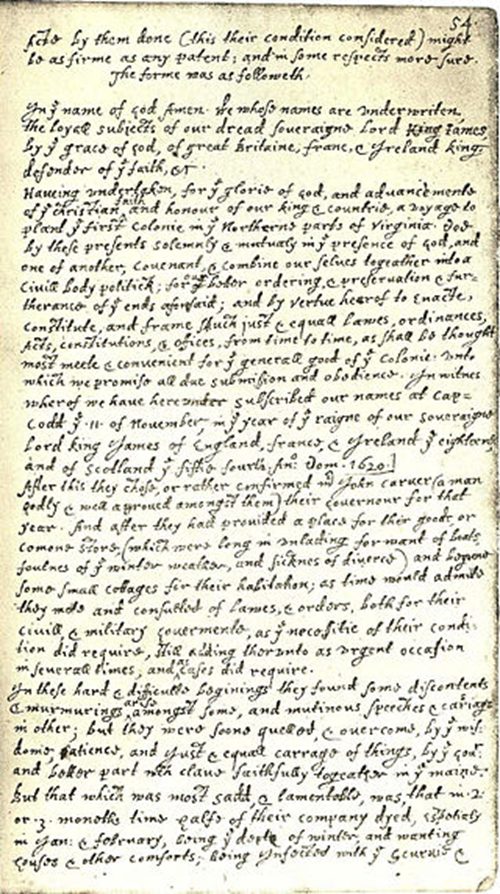 54.
Acts by them done (this their condition considered) might
be as firme as any patent; and in some respects more sure.
The forme was as followeth.
In yͤ name of god Amen. We whose names are underwriten,
the loyall subjects of our dread soveraigne Lord King James,
by yͤ grace of god, of great Britaine, franc, & Ireland king,
defender of yͤ faith, &c.
Haveing undertaken, for yͤ glorie of god, and advancemente
of yͤ christian faith and honour of our king & countrie, a voyage to
plant yͤ first colonie in yͤ Northerne parts of Virginia. Doe
by these presents solemnly & mutualy in yͤ presence of god, and
one of another, covenant, & combine our selves togeather into a
Civill body politick; for our better ordering, & preservation & fur=
therance of yͤ ends aforesaid; and by vertue hearof to Enacte,
constitute, and frame shuch just & equall lawes, ordinances,
Acts, constitutions, & offices, from time to time, as shall be thought
most meete & convenient for yͤ generall good of yͤ colonie: unto
which we promise all due submission and obedience. In witnes
wherof we have hereunder subscribed our names at Cap=
Codd yͤ .11. of November, in yͤ year of yͤ raigne of our soveraigne
Lord king James of England, france, & Ireland yͤ eighteenth
and of Scotland yͤ fiftie fourth. Anͦ: Dom. 1620.]
After this they chose, or rather confirmed mͬ John carver (a man
godly & well approved amongst them) their governour for that
year. And after they had provided a place for their goods, or
comone store, (which were long in unlading for want of boats,
foulnes of yͤ winter weather, and sicknes of diverce) and begune
some small cottages for their habitation; as time would admitte
they mette and consulted of lawes, & orders, both for their
civill, & military govermente, as yͤ necessitie of their condi=
tion did require, still adding therunto as urgent occasion
in severall times, and as cases did require.
In these hard & difficulte beginings they found some discontents
& murmurings arise amongst some, and mutinous speeches & cariags
in other; but they were soone quelled, & overcome, by yͤ wis=
dome, patience, and just & equall carrage of things, by yͤ govͬ
and better part wͨh clave faithfully togeather in yͤ maine.
But that which was most sadd, & lamentable, was, that in .2.
or .3. moneths time halfe of their company dyed, espetialy
in Jan: & february, being yͤ depth of winter, and wanting
houses & other comforts; being Infected with yͤ scurvie &